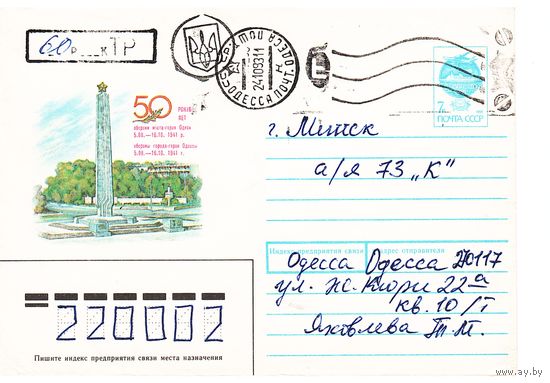 60 р к ТР
ОДЕССА ПОЧТ.
24 10 93 11
7к
ПОЧТА СССР
50 РОКІВ
ЛЕТ
оборони міста-героя Одеси
5.08.—16.10. 1941 р.
обороны города-героя Одессы
5.08.—16.10. 1941 г.
г. Минск
а/я 73 „К"
Индекс предприятия связи и адрес отправителя
Одесса Одесса 270117
ул. Ж. Кюри 22а
кв. 10/1
Яковлева Т.М.
220002
Пишите индекс предприятия связи места назначения
www.ay.by